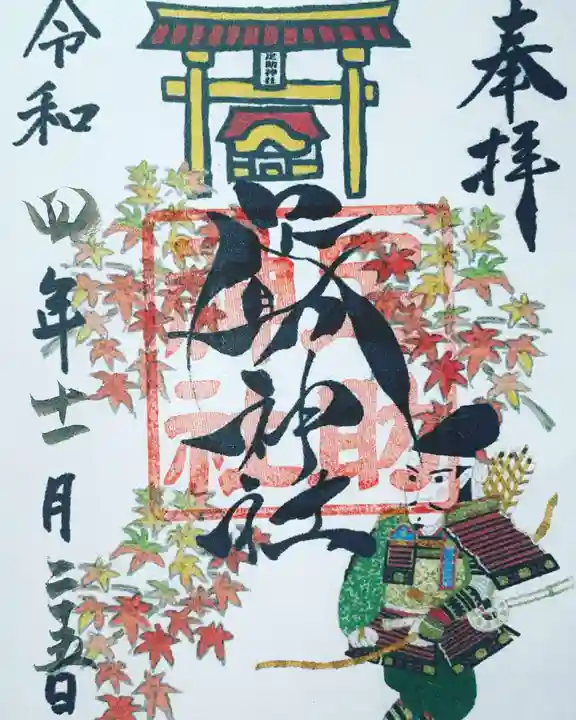 奉拝
足助神社
足助神社
足助神社
令和四年十一月二十五日